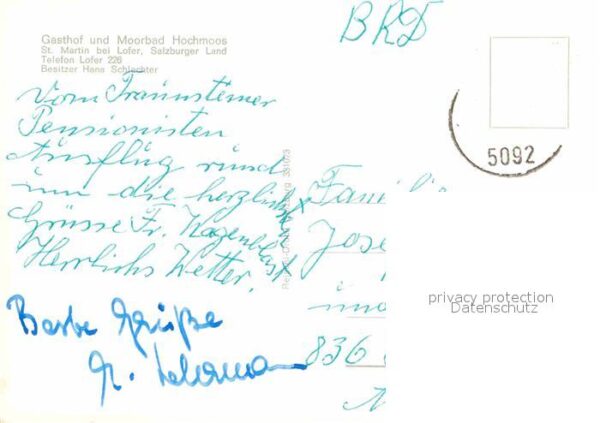 Gasthof und Moorbad Hochmoos
St. Martin bei Lofer, Salzburger Land
Telefon Lofer 226
Besitzer Hans Schlechter
BRD
5092
Vom Traunsteiner
Pensionisten
Ausflug
um die herzlichsten
Grüsse Fr. Wagenblast
Herrlichs Wetter.
Beste Grüße
Famili
Jose
und
836
privacy protection
Datenschutz